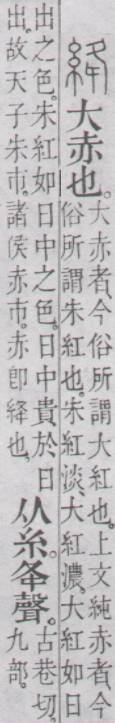 絳大赤也。大赤者今俗所謂大紅也。上文純赤者今
俗所謂朱紅也。朱紅淡、大紅濃。大紅如日
出之色。朱紅如日中之色。日中貴於日
出。故天子朱巿。諸侯赤巿。赤卽絳也。
从糸。夅聲。古巷切。
九部。